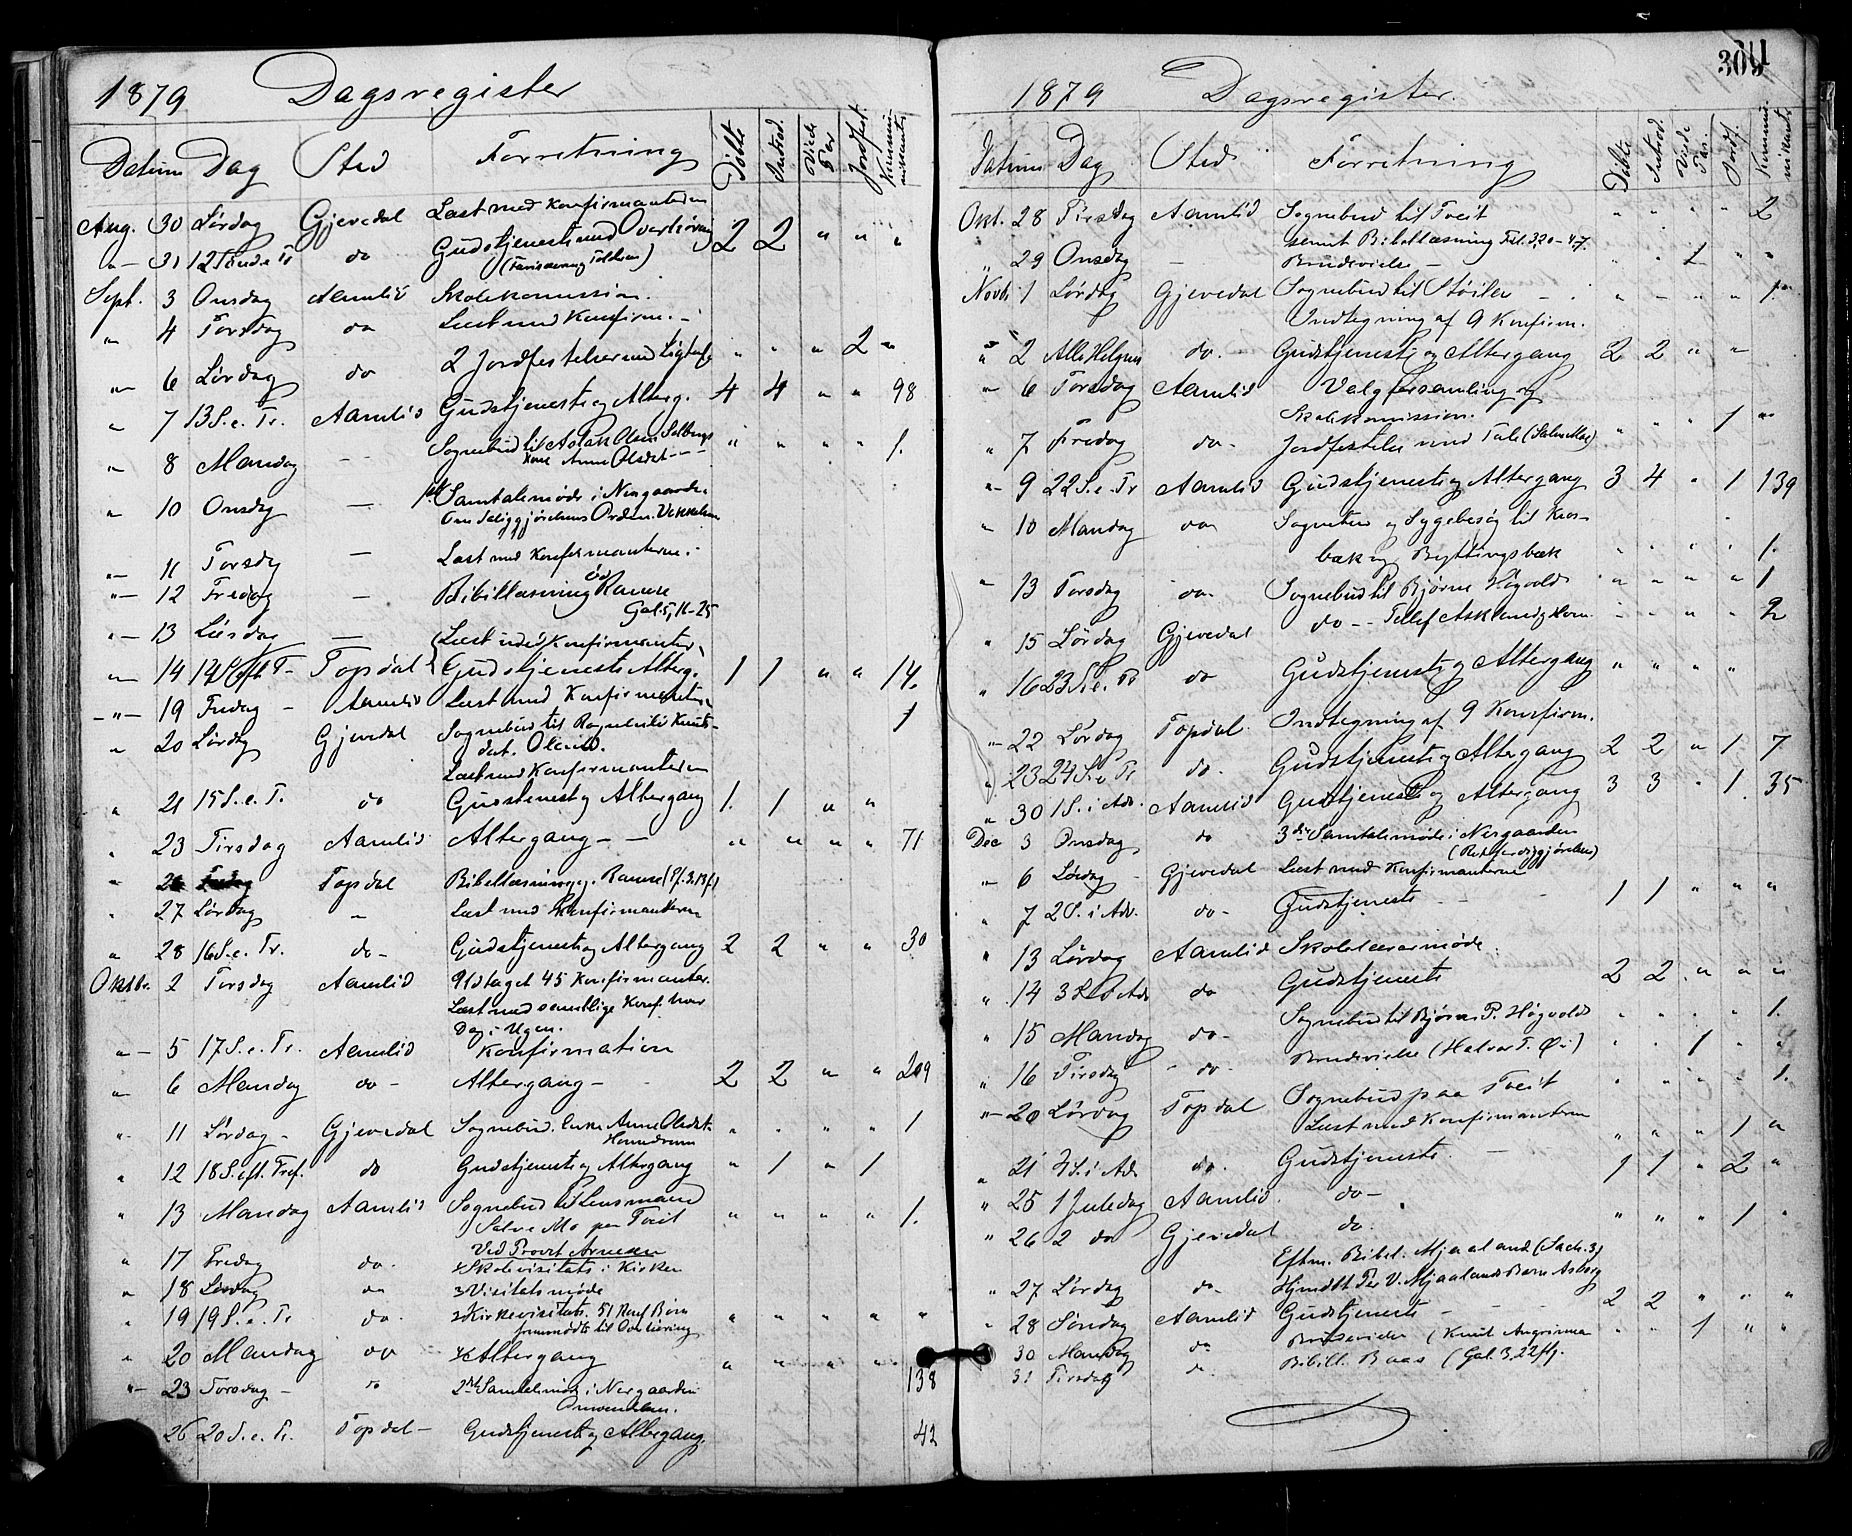 1879 Dagsregister
Datum Dag Sted Forretning Døbte Introd. Viede Par Jordfest. Kommunikanter
Aug. 30 Lørdag Gjevedal Læst med Konfirmanterne
" 31 12 Sønd. e. Tr. do Gudstjeneste med Overhøring 2 2 " " "
Sept. 3 Onsdag Aamlid Skolekomission.
" 4 Torsdag do Læst med Konfirm. -
" 6 Lørdag do 2 Jordfestelser med Ligtale " " " 2 "
" 7 13 S. e. Tr. Aamlid Gudstjeneste og Alterg. 4 4 " " 98
" 8 Mandag - - Sognebud til Aslak Olsen
Kone Anne Olsdat - - " " " " 1.
" 10 Onsdag - 1ste Samtalemøde i Nergaarden
Om Saliggjørelsens Orden. Vækkelsen
" 11 Torsdg - Læst med Konfirmanterne.
" 12 Fredag - Bibellæsning Ramse
Gal. 5, 16-25
" 13 Lørdag - Læst med Konfirmanter
" 14 14 S. eft. T- Topdal Gudstjeneste Alterg. 1 1 " " 14.
" 19 Fredag - Aamlid Læst med Konfirmanterne
" 20 Lørdag Gjevedal Sognebud til Ragnhild Knuts- 1
dat.
Læst med Konfirmanterne
" 21 15 S. e. T. do Gudstjenest og Altergang 1. 1 " "
" 23 Tirsdag Aamlid Altergang - - " " " " 71
" 26 Fredag Topdal Bibellæsning Ramse
" 27 Lørdag - Læst med Konfirmanterne
" 28 16 S. e. Tr. do - Gudstjeneste og Altergang 2 2 " " 30
Oktbr. 2 Torsdag Aamlid Udtaget 45 Konfirmanter.
Læst med samtlige Konf. hver
Dag i Ugen.
" 5 17 S. e. Tr. Aamlid Konfirmation
" 6 Mandag do - Altergang - 2 2 " " 209
" 11 Lørdag - Gjevedal Sognebud. Enke Anne Olsdat. " " " " 1
" 12 18 S. eft. Tref. do Gudstjeneste og Altergang " 1 " 1
" 13 Mandag Aamlid Sognebud til Lensmand
Salve Mo paa Tveit " " " " 1.
Ved Provst Arnesen
" 17 Fredag do. Skolevisitats i Kirken
" 18 Lørdag do Visitatsmøde
" 19 19 S. e. Tr do. Kirkevisitats. 51 Konf Børn
fremmødte til Overhøring " " " " "
" 20 Mandag do Altergang " " " " 138
" 23 Torsdag - do 2det Samtalemøde i Nergaarden
Omvendelsen.
26 20 S. e. Tr. Topdal - Gudstjeneste og Altergang. 42
309
1879 Dagsregister.
Datum Dag Sted Forretning Døbte Introd. Viede Par. Jordf. Kommunikant.
Okt. 28 Tirsdag Aamlid Sognebud til Tveit " " " " 2
samt Bibellæsning Fil. 3,20-4,7.
" 29 Onsdag - Brudevielse - " " 1 " "
Novb. 1 Lørdag Gjevedal Sognebud til Støilen - " " " " 1.
Indtegning af 9 Konfirm.
" 2 Alle Helgens do. Gudstjeneste og Altergang 2 2 " "
" 6 Torsdag Aamlid Valgforsamling og
Skolekomission.
" 7 Fredag do - Jordfestelse med Tale (Salve Mo) " " " 1 "
" 9 22 S. e. Tr Aamlid Gudstjeneste og Altergang 3 4 " 1 139
" 10 Mandag do Sognebud og Sygebesøg til Kros-
bæk og Byttingsbæk " " " " 1.
" 13 Torsdag do. Sognebud til Bjørn Høgvold " " " " 1
" 15 Lørdag Gjevedal do - - Tellef Askland og Kone - " " " " 2
" 16 23 S. e. Tr do Gudstjeneste og Altergang " " " "
" 22 Lørdag Topdal. Indtegning af 9 Konfirm.
" 23 24 S. e Tr do. Gudstjeneste og Altergang 2 2 " 1. 7
" 30 1 S. i Adv. Aamlid Gudstjeneste og Altergang 3 3 " 1. 35
Dec 3 Onsdag do 3die Samtalemøde i Nergaarden
(Retfærdiggjørelsen)
" 6 Lørdag - Gjevedal Læst med Konfirmanterne
" 7 2 S. i Adv. do - Gudstjeneste - - 1 1 " " "
" 13 Lørdag Aamlid Skolelærermøde.
" 14 3 S. i Adv do Gudstjeneste 2 2 " " "
" 15 Mandag do - Sognebud til Bjørn P. Høgvold " " " " 1.
" 16 Tirsdag - do - Brudevielse (Halvor T. Øi) " " 1 " "
" 20 Lørdag Topdal Sognebud paa Tveit " " " " 1.
Læst med Konfirmanterne
" 21 4 S. i Adv do. Gudstjeneste. - 1 1 " 2 "
" 25 1 Juledag Aamlid. do -
" 26 2 do Gjevedal do. " " " 1 "
Eftm. Bibel. Mjaaland (Sach. 3)
" 27 Lørdag do Hjmdbt Per V. Mjaalands Barn Asborg
" 28 Søndag Aamlid Gudstjeneste - - - 2 2 " " "
" 30 Mandag do Brudevielse (Knut " " 1 " "
31 Tirsdag do Bibell. Baas (Gal. 3,22 flg.